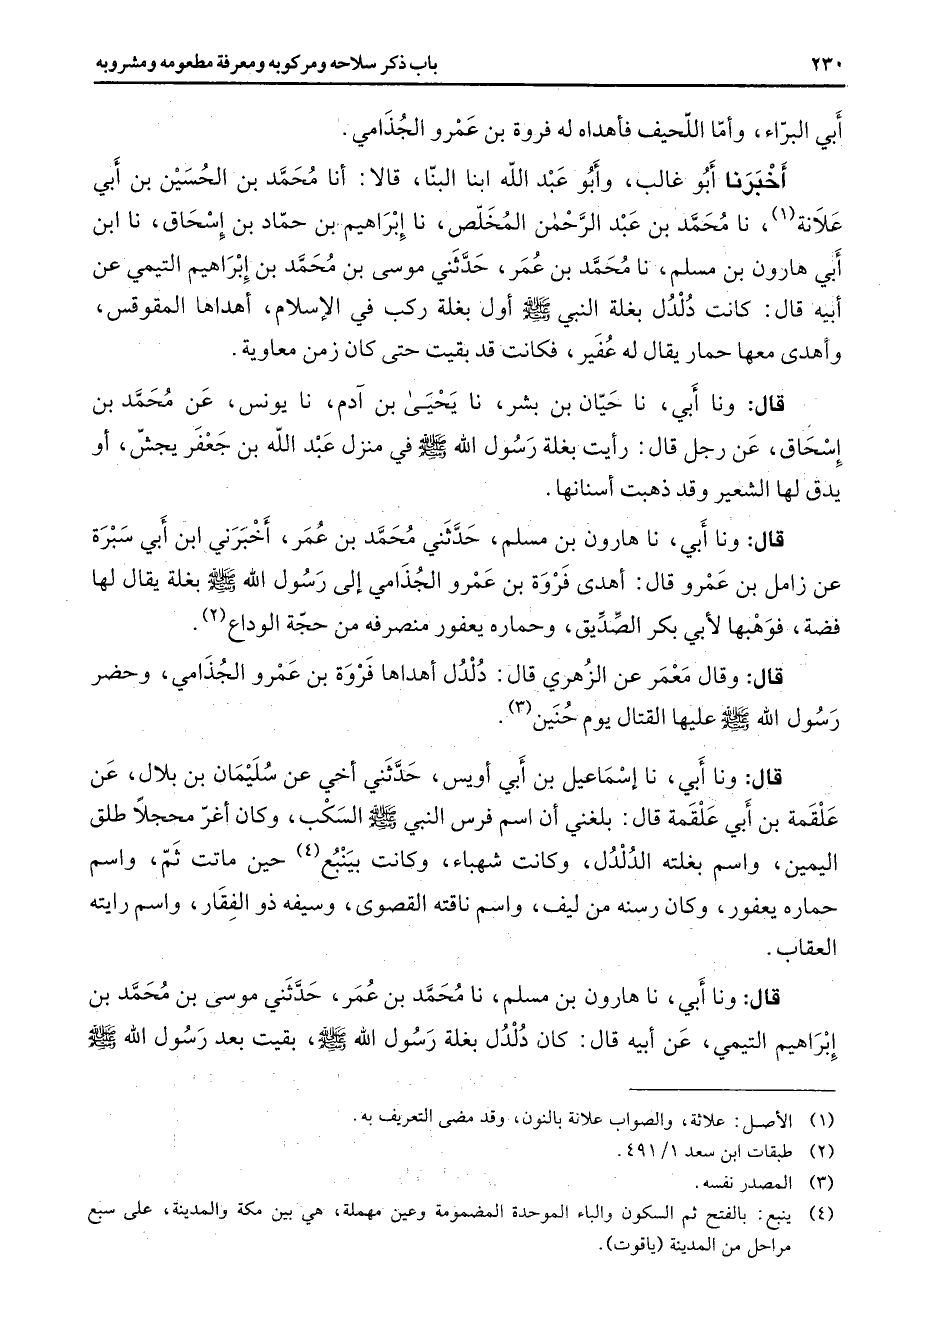 ٢٣٠ باب ذكر سلاحه ومركوبه ومعرفة مطعومه ومشروبه
أَبي البرّاء، وأمّا اللّحيف فأهداه له فروة بن عَمْرو الجُذَامي.
أَخْبَرَنا أَبُو غالب، وأَبُو عَبْد اللّه ابنا البنّا، قالا: أنا مُحَمَّد بن الحُسَيْن بن أَبي
عَلَانة(١)، نا مُحَمَّد بن عَبْد الرَّحْمٰن المُخَلّص، نا إِبْرَاهيم بن حمّاد بن إِسْحَاق، نا ابن
أَبي هارون بن مسلم، نا مُحَمَّد بن عُمَر، حَدَّثَني موسى بن مُحَمَّد بن إِبْرَاهيم التيمي عن
أبيه قال: كانت دُلْدُل بغلة النبي ﷺ أول بغلة ركب في الإسلام، أهداها المقوقس،
وأهدى معها حمار يقال له عُفَير، فكانت قد بقيت حتى كان زمن معاوية.
قال: ونا أَبي، نا حَيّان بن بشر، نا يَحْيَىٰ بن آدم، نا يونس، عَن مُحَمَّد بن
إِسْحَاق، عَن رجل قال: رأيت بغلة رَسُول الله ﷺ في منزل عَبْد اللّه بن جَعْفَر يجشّ، أو
يدق لها الشعير وقد ذهبت أسنانها.
قال: ونا أَبي، نا هارون بن مسلم، حَدَّثَني مُحَمَّد بن عُمَر، أَخْبَرَني ابن أَبي سَبْرَة
عن زامل بن عَمْرو قال: أهدى فَرْوَة بن عَمْرو الجُذَامي إلى رَسُول الله ﷺ بغلة يقال لها
فضة، فوَهْبها لأبي بكر الصِّدِّيق، وحماره يعفور منصرفه من حجّة الوداع(٢).
قال: وقال مَعْمَر عن الزهري قال: دُلْدُل أهداها فَرْوَة بن عَمْرو الجُذَامي، وحضر
رَسُول الله ﷺ عليها القتال يوم حُنَين(٣).
قال: ونا أَبي، نا إِسْمَاعيل بن أَبي أويس، حَدَّثَني أخي عن سُلَيْمَان بن بلال، عَن
عَلْقَمة بن أَبي عَلْقَمة قال: بلغني أن اسم فرس النبي ﷺ السَكْب، وكان أغرّ محجلاً طلق
اليمين، واسم بغلته الدُلْدُل، وكانت شهباء، وكانت بيَنْبُع(٤) حين ماتت ثَمّ، واسم
حماره يعفور، وكان رسنه من ليف، واسم ناقته القصوى، وسيفه ذو الفِقَار، واسم رايته
العقاب.
قال: ونا أَبي، نا هارون بن مسلم، نا مُحَمَّد بن عُمَر، حَدَّثَني موسى بن مُحَمَّد بن
إِبْرَاهيم التيمي، عَن أبيه قال: كان دُلْدُل بغلة رَسُول الله ﷺ، بقيت بعد رَسُول الله ﷺ
(١) الأصل: علاثة، والصواب علانة بالنون، وقد مضى التعريف به.
(٢) طبقات ابن سعد ١/ ٤٩١.
(٣) المصدر نفسه.
(٤) ينبع: بالفتح ثم السكون والباء الموحدة المضمومة وعين مهملة، هي بين مكة والمدينة، على سبع
مراحل من المدينة (ياقوت).